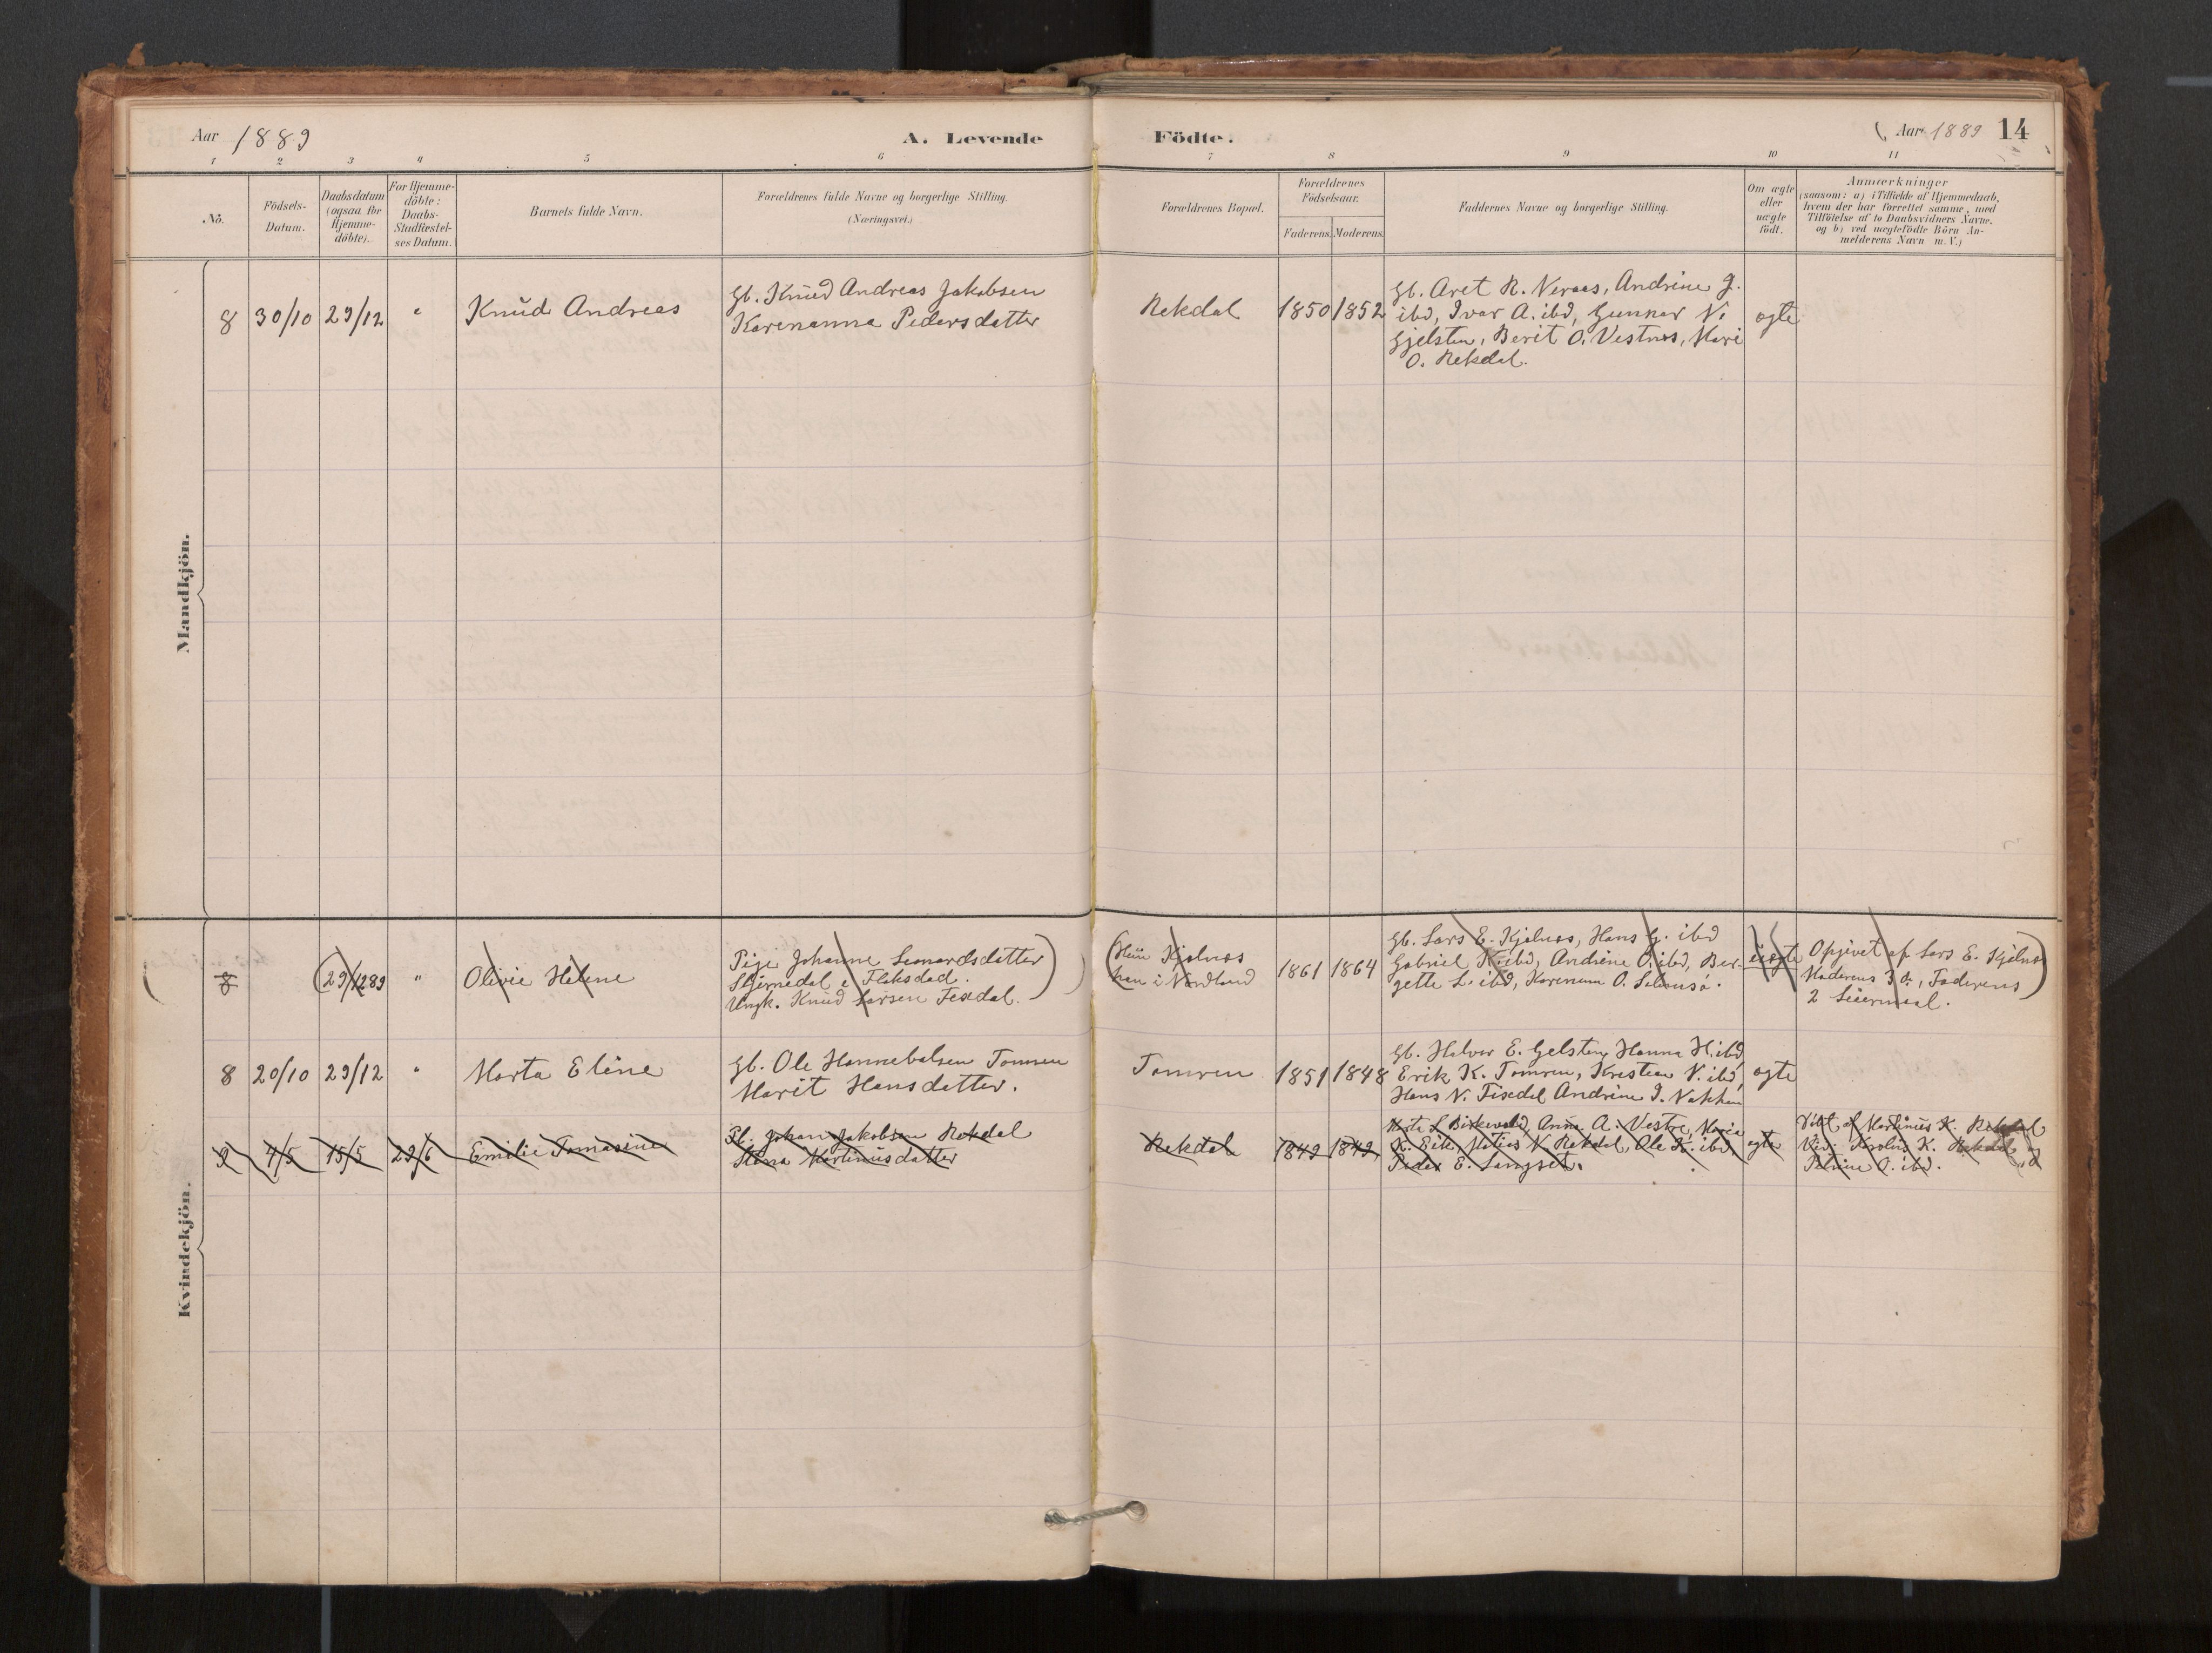 Aar 1889
A. Levende Födte.
Aar 1889 14
1 2 3 4 5 6 7 8 9 10 11
No.
Födsels-
Datum.
Daabsdatum
(ogsaa for
Hjemme-
döbte).
For Hjemme-
döbte:
Daabs-
Stadfæstel-
ses Datum.
Barnets fulde Navn.
Forældrenes fulde Navne og borgerlige Stilling.
(Næringsvei.)
Forældrenes Bopæl.
Forældrenes
Födselsaar.
Faderens. Moderens.
Faddernes Navne og borgerlige Stilling.
Om ægte
eller
uægte
födt.
Anmærkninger
(saasom: a) i Tilfælde af Hjemmedaab,
hvem der har forrettet samme, med
Tilföielse af to Daabsvidners Navne.
og b) ved uægtefödte Börn An-
melderens Navn m. V.)
Mandkjön.
8 30/10 29/12 " Knud Andreas
Gb. Knud Andreas Jakobsen
Karenanna Pedersdatter
Rekdal 1850 1852
Gb. Aret R. Neraas, Andrine J.
ibd, Ivar A. ibd, Gunnar N.
Gjelsten, Berit O. Vestnes, Mari
O. Rekdal.
ægte
Kvindekjön.
8 (29/12 89 " Olivie Helene
Pige Johanne Leonardsdatter
i Flaksdad.
Ungk. Knud Larsen Fixdal.)
(Hun Kjelnæs
han i Nordland
1861 1864
Gb. Lars E. Kjelnæs, Hans G. ibd
Gabriel K. ibd, Andrine O. ibd, Ber-
gette L. ibd, Karenum O.
uægte
Opgivet af Lars E. Kjelnæs
Moderens 3 o., Faderens
2 Leiermaal.)
8 20/10 29/12 " Marta Eline
Gb. Ole Hannebalsen Tomren
Marit Hansdatter.
Tomren 1851 1848
Gb. Halvor E. Gelsten, Hanna H. ibd,
Erik K. Tomren, Kristine V. ibd,
Hans N. Fixdal Andrine I. Nakken
ægte
9 4/5 15/5 29/6 Emilie Tomasine
Johan Jakobsen Rekdal
Stina Martinusdatter
Rekdal 1849 1849
L. Birkevold, Anne A. Vestre, Marie
K. Eik, Matias N. Rekdal, Ole K. ibd,
Peder E. Langset.
ægte
Döbt af Martinus K. Rekdal
Vid. Karolius K. Rekdal og
Petrine O. ibd.